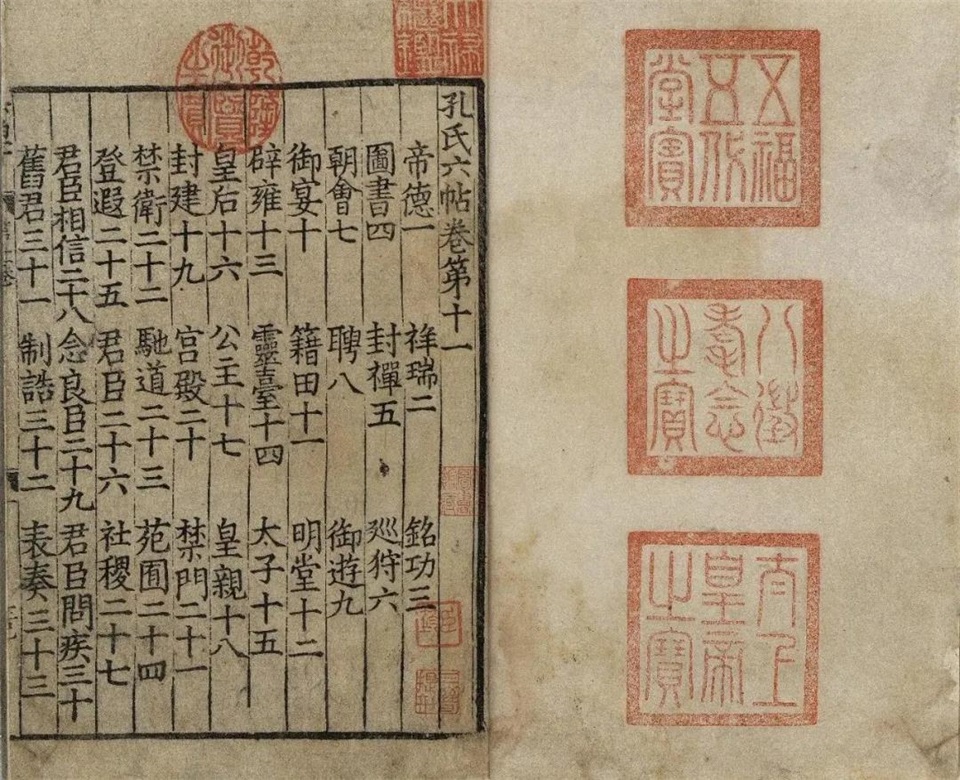 五福
五代
堂寶
八徵
耄念
之寶
太上
皇帝
之寶
天祿
繼鑑
乾隆
御覽
之寶
孔氏六帖卷第十一
帝德一 祥瑞二 銘功三
圖書四 封禪五 廵狩六
朝會七 聘八 御遊九
御宴十 籍田十一 明堂十二
辟雍十三 靈臺十四 太子十五
皇后十六 公主十七 皇親十八
封建十九 宮殿二十 禁門二十一
禁衛二十二 馳道二十三 苑囿二十四
登遐二十五 君臣二十六 社稷二十七
君臣相信二十八 念良臣二十九 君臣問疾三十
舊君三十一 制誥三十二 表奏三十三